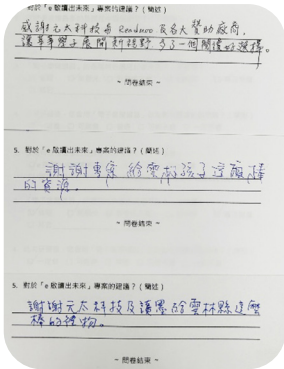 對於「e 啟讀出未來」專案的建議？（簡述）
感謝元太科技與 Readmoo 及各大贊助廠商，
讓莘莘學子展開新視野 多了一個閱讀的選擇。
~ 問卷結束 ~
5. 對於「e 啟讀出未來」專案的建議？（簡述）
謝謝專案給雲林孩子這麼棒
的資源。
~ 問卷結束 ~
5. 對於「e 啟讀出未來」專案的建議？（簡述）
謝謝元太科技及讀墨給雲林縣這麼
棒的禮物。
~ 問卷結束 ~